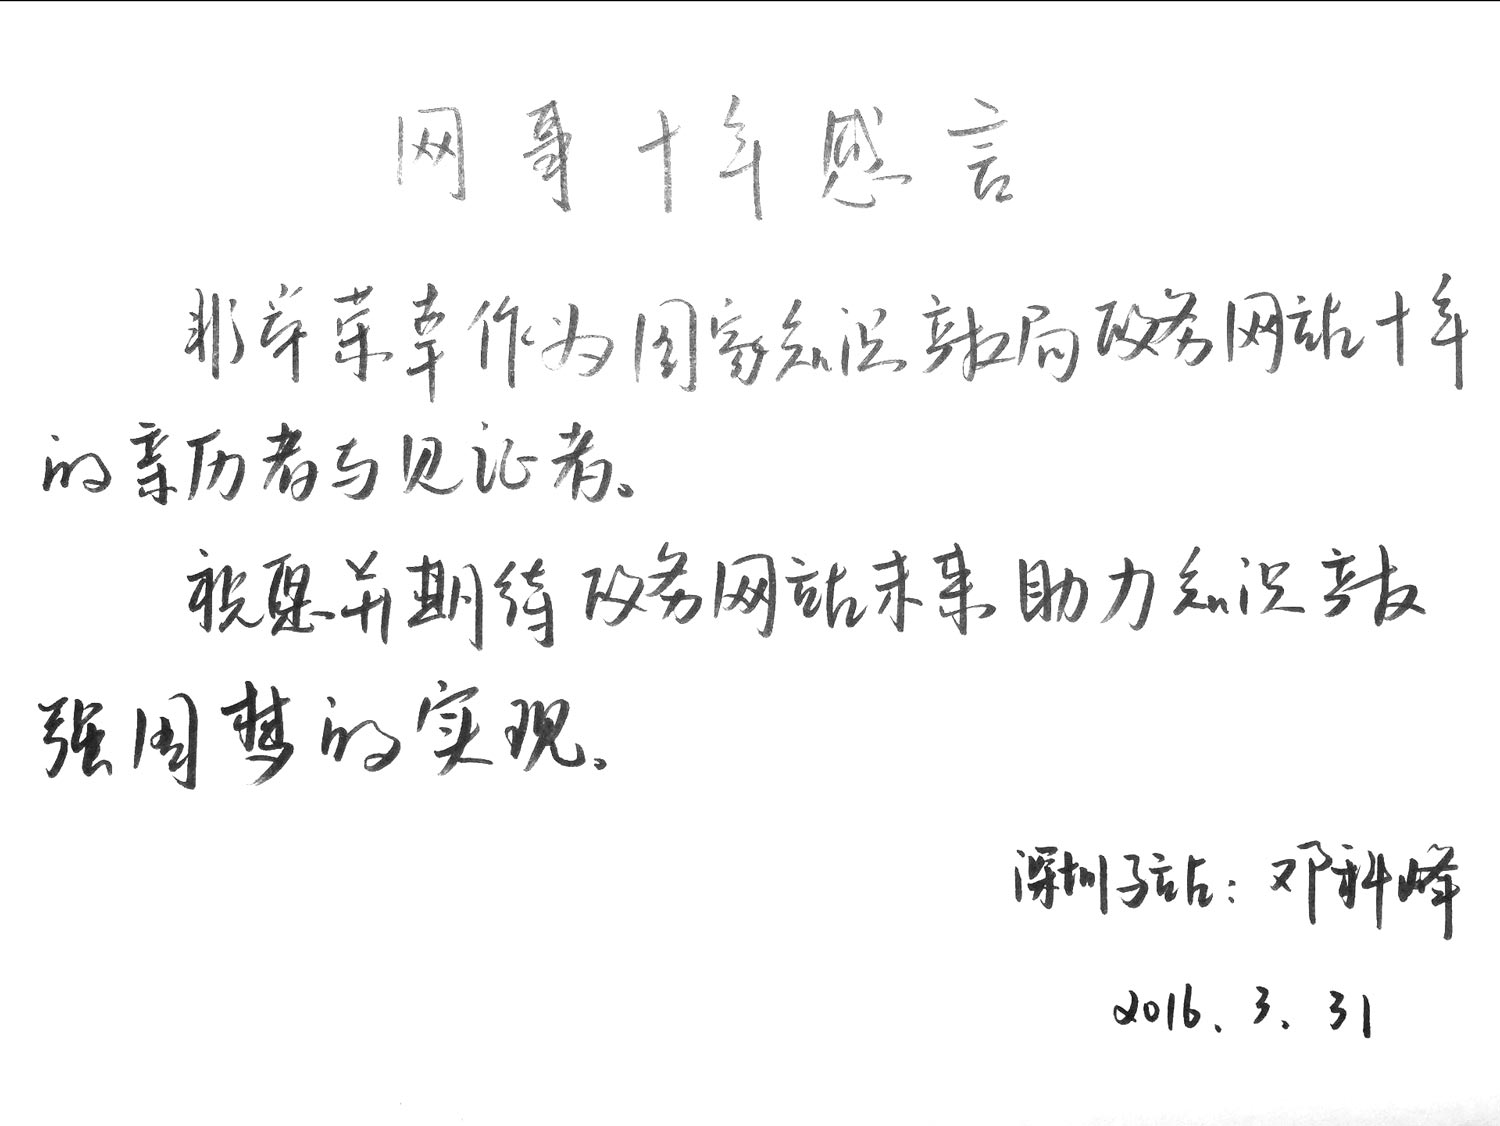 网哥十年感言
非常荣幸作为国家知识产权局政务网站十年
的亲历者与见证者。
祝愿并期待政务网站未来助力知识产权
强国梦的实现。
深圳子站：邓科峰
2016.3.31